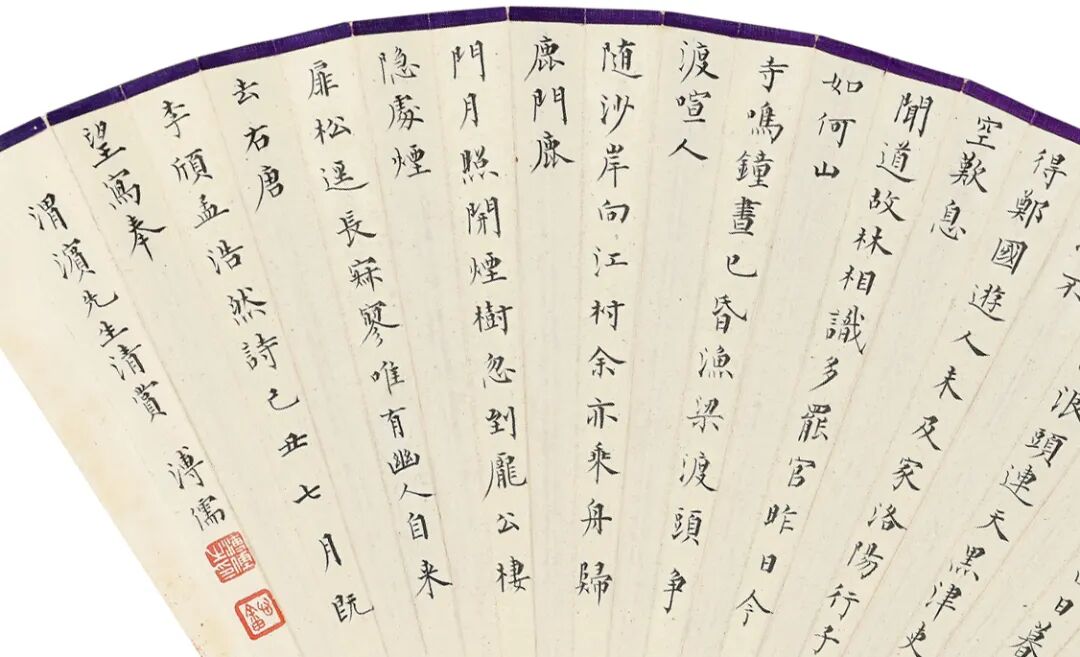 日暮
浪頭連天黑津吏
不
得鄭國遊人未及家洛陽行子
空歎息
聞道故林相識多罷官昨日今
如何山
寺鳴鐘晝已昏漁梁渡頭爭
渡喧人
隨沙岸向江村余亦乘舟歸
鹿門鹿
門月照開煙樹忽到龐公棲
隐處煙
扉松逕長寂寥唯有幽人自来
去右唐
李頎孟浩然詩己丑七月既
望寫奉
渭濱先生清賞 溥儒